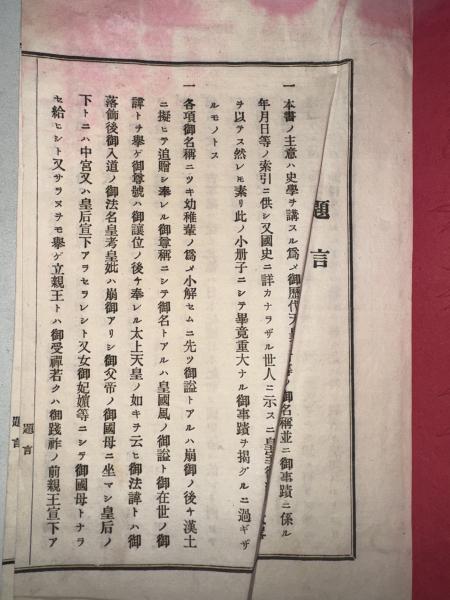 題言
一 本書ノ主意ハ史學ヲ講スル爲メ御歷代天皇 ノ御名稱並ニ御事蹟ニ係ル
年月日等ノ索引ニ供シ又國史ニ詳カナラザル世人ニ示スニ皇室
ヲ以テス然レ𪜈素リ此ノ小册子ニシテ畢竟重大ナル御事蹟ヲ揭グルニ過ギザ
ルモノトス
一 各項御名稱ニツキ幼稚輩ノ爲メ小解セムニ先ツ御謚トアルハ崩御ノ後ケ漢土
ニ擬ヒテ追贈シ奉レル御尊稱ニシテ御名トアルハ皇國風ノ御謚ト御在世ノ御
諱トヲ擧ゲ御尊號ハ御讓位ノ後ケ奉レル太上天皇ノ如キヲ云ヒ御法諱トハ御
落飾後御入道ノ御法名皇考皇妣ハ崩御アリシ御父帝ノ御國母ニ坐マシ皇后ノ
下トニハ中宮又ハ皇后宣下アラセラレシト又女御妃嬪等ニシテ御國母トナラ
セ給ヒシト又サラヌヲモ擧ゲ立親王トハ御受禪若クハ御踐祚ノ前親王宣下ア
題言
題言